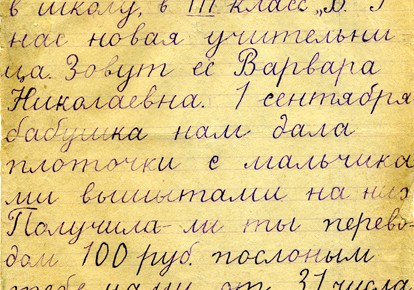 в школу, в III класс „Б. У
нас новая учительни-
ца. Зовут её Варвара
Николаевна. 1 сентября
бабушка нам дала
плоточки с мальчика
ми вышытами на них
Получила-ли ты перево-
дом 100 руб. послоным
тебе нами от 31 числа